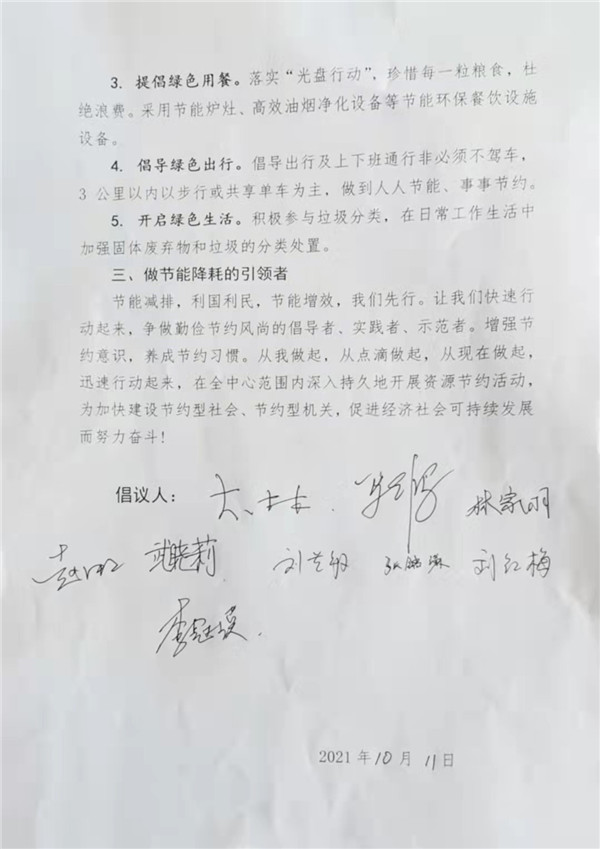 3. 提倡绿色用餐。落实“光盘行动”，珍惜每一粒粮食，杜
绝浪费。采用节能炉灶、高效油烟净化设备等节能环保餐饮设施
设备。
4. 倡导绿色出行。倡导出行及上下班通行非必须不驾车，
3 公里以内以步行或共享单车为主，做到人人节能、事事节约。
5. 开启绿色生活。积极参与垃圾分类，在日常工作生活中
加强固体废弃物和垃圾的分类处置。
三、做节能降耗的引领者
节能减排，利国利民，节能增效，我们先行。让我们快速行
动起来，争做勤俭节约风尚的倡导者、实践者、示范者。增强节
约意识，养成节约习惯。从我做起，从点滴做起，从现在做起，
迅速行动起来，在全中心范围内深入持久地开展资源节约活动，
为加快建设节约型社会、节约型机关，促进经济社会可持续发展
而努力奋斗！
倡议人： 林家羽
武晓莉 刘兰敏 刘红梅
2021 年 10 月 11 日